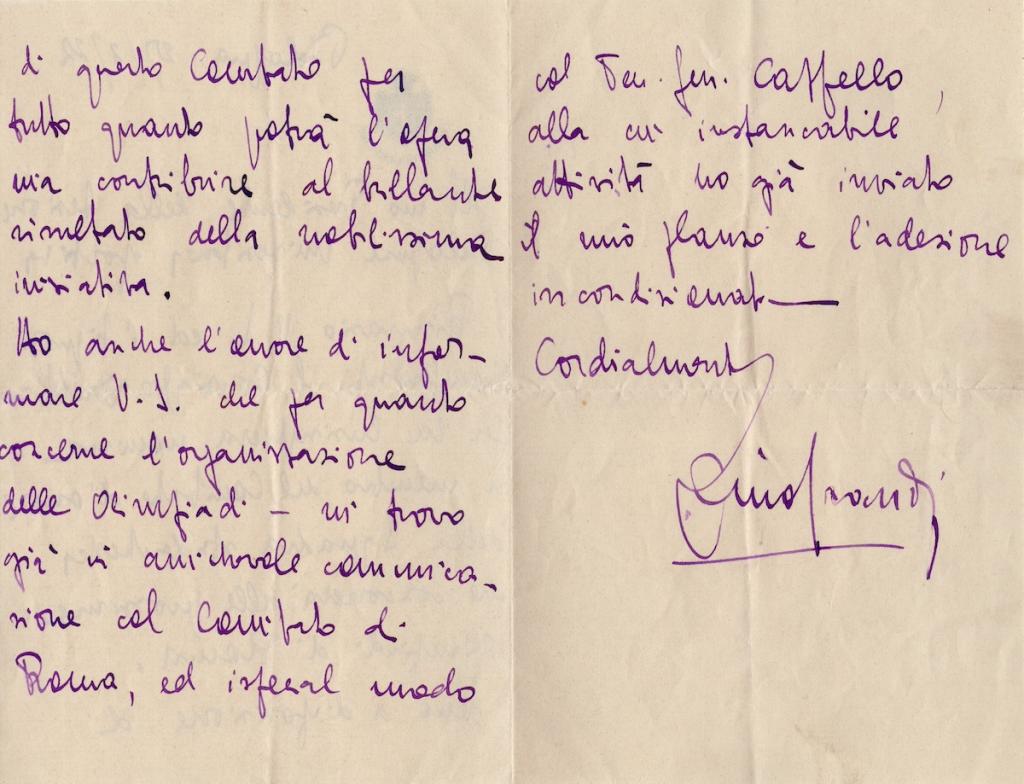 di questo Comitato per
tutto quanto potrà l'opera
mia contribuire al brillante
risultato della nobilissima
iniziativa.
Ho anche l'onore di infor-
mare V. S. che per quanto
concerne l'organizzazione
delle Olimpiadi – mi trovo
già in amichevole comunica-
zione col Comitato di
Roma, ed ispecial modo
col Ten. Gen. Cappello,
alla cui instancabile
attività ho già inviato
il mio plauso e l'adesione
incondizionata
Cordialmente
Dino Grandi